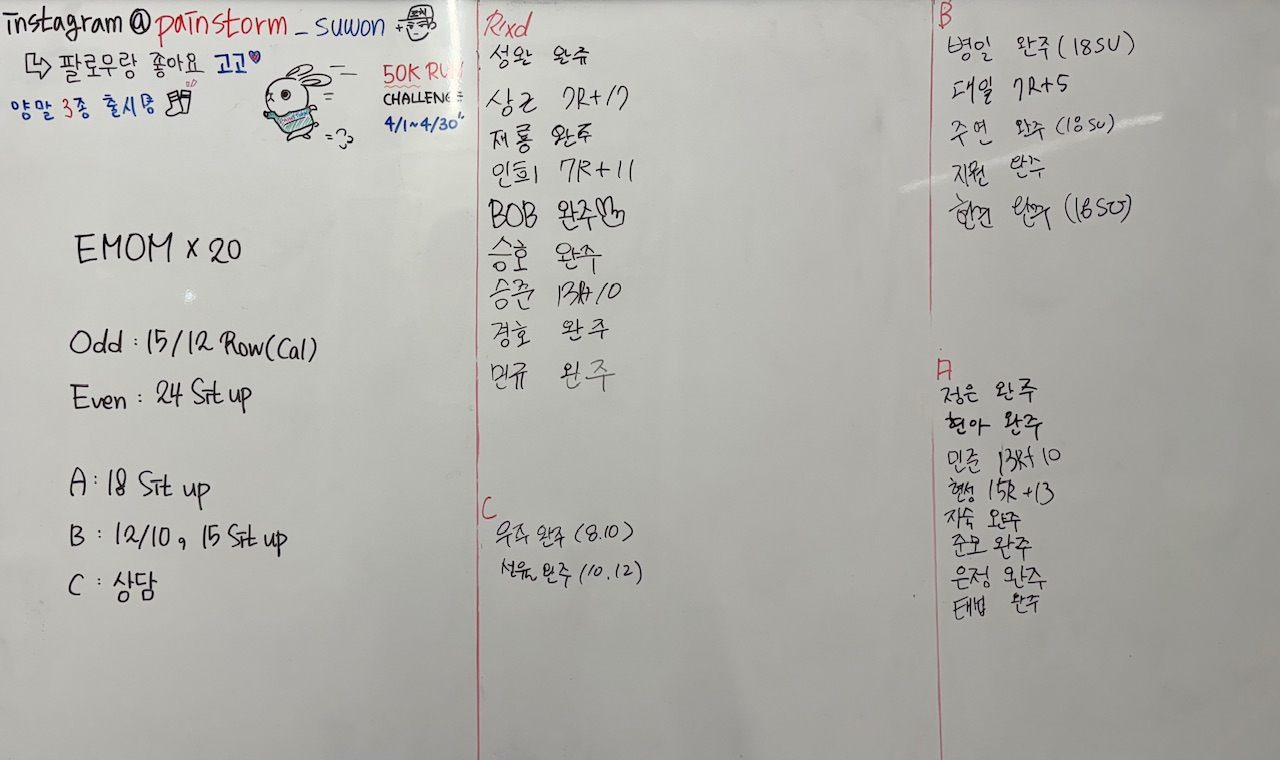 instagram @ painstorm_suwon
팔로우랑 좋아요 고고
양말 3종 출시
50K RUN
CHALLENGE
4/1~4/30
EMOM x 20
Odd : 15/12 Row(Cal)
Even : 24 Sit up
A : 18 Sit up
B : 12/10, 15 Sit up
C : 상담
Rxd
성완 완주
상근 7R+17
재룡 완주
인희 7R+11
BOB 완주
승호 완주
승준 13R+10
경호 완주
민규 완주
C
우주 완주 (8.10)
선유 완주 (10.12)
B
병일 완주 (18SU)
대일 7R+5
주연 완주 (18SU)
지원 완주
완주 (18SU)
A
정은 완주
현아 완주
민준 13R+10
현성 15R+13
지숙 완주
준모 완주
은정 완주
태범 완주